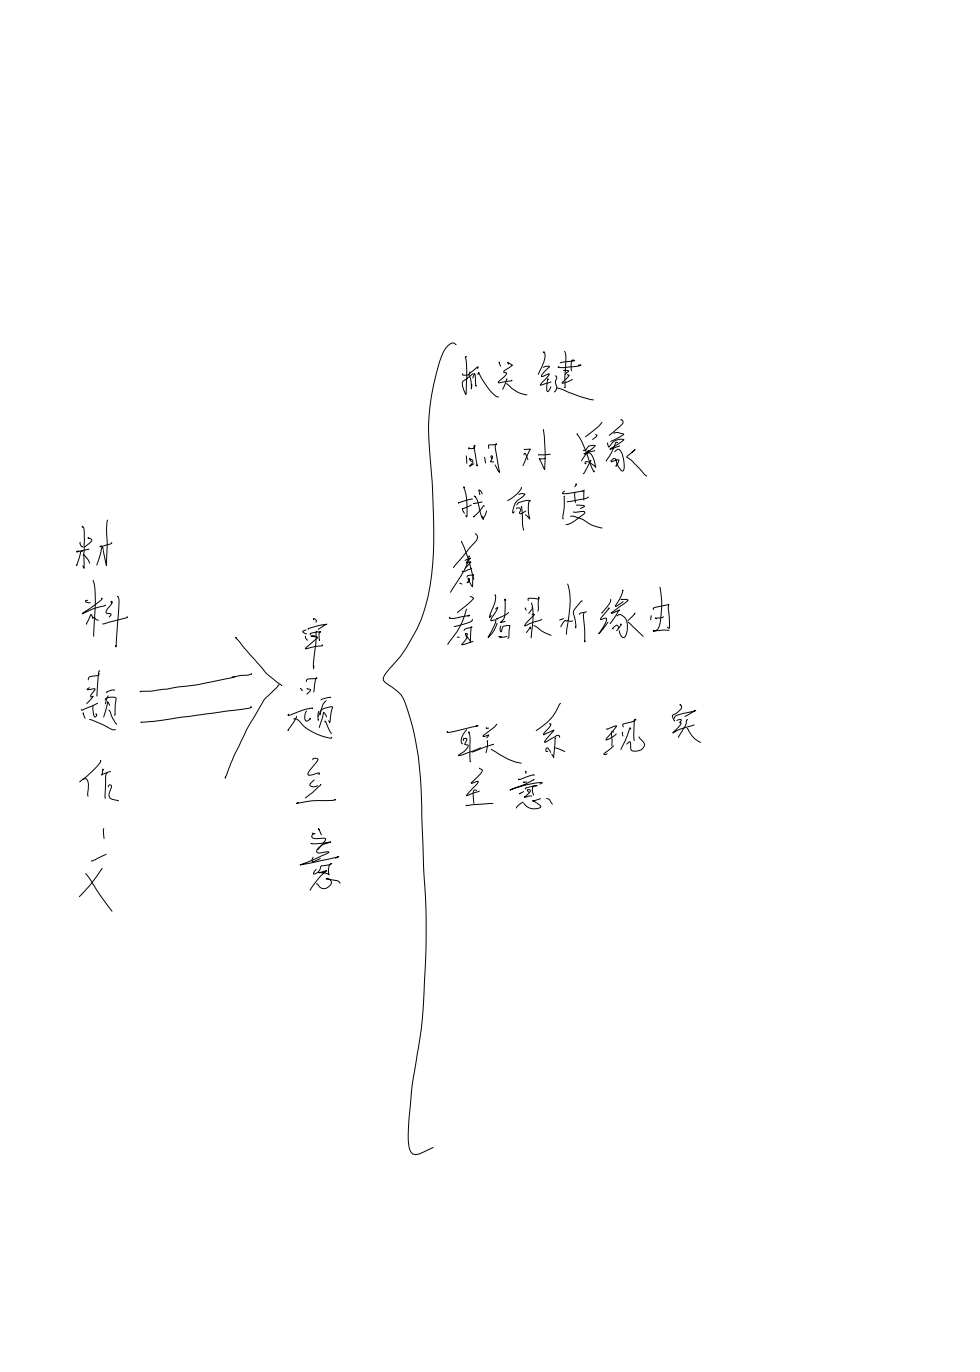 材料题作文
审题立意
抓关键
明对象
找角度
看结果析缘由
联系现实
主意